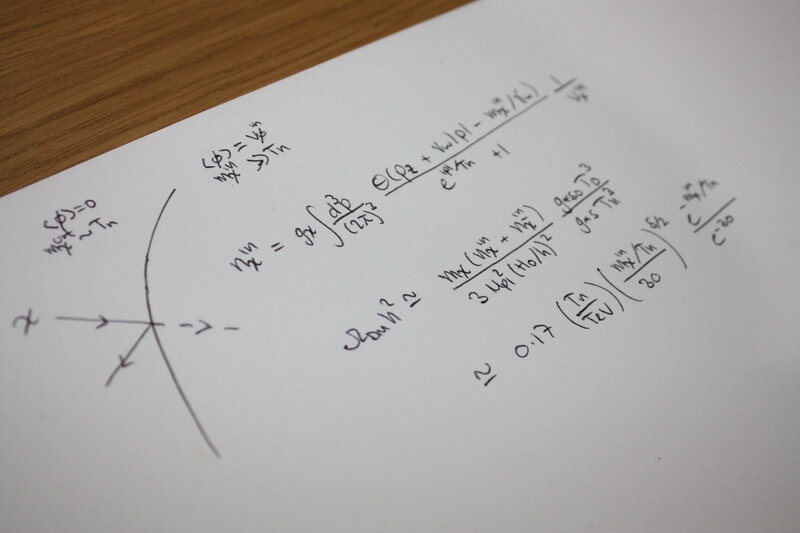 ⟨φ⟩=0
~ Tn
⟨φ⟩ = vφ
≫ Tn
χ
n_χ^in = g_χ ∫ d³p/(2π)³ Θ(p_z + v_w|p| - m_χ^in/γ_w)/(e^{|p|/Tn} + 1) 1/v_w
Ω_DM h² ≃ m_χ(n_χ^in + n_χ̄^in)/(3 M_pl² (H_0/h)²) g_{*s0} T_0³/(g_{*s} T_n³)
≃ 0.17 (Tn/TeV) (m_χ^in/Tn/30)^{5/2} e^{-m_χ^in/Tn}/e^{-30}